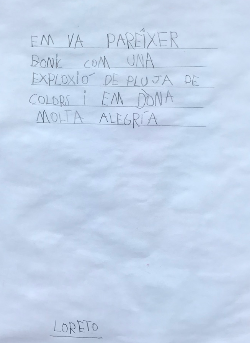 EM VA PARÉIXER
BONK COM UNA
EXPLOXIÓ DE PLUJA DE
COLORS I EM DÒNA
MOLTA ALEGRÍA
LORETO